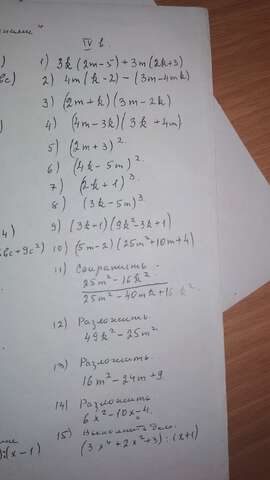 IV в.
1) 3k(2m-5)+3m(2k+3)
2) 4m(k-2)-(3m-4mk)
3) (2m+k)(3m-2k)
4) (4m-3k)(3k+4m)
5) (2m+3)²
6) (4k-5m)²
7) (2k+1)³
8) (3k-5m)³
9) (3k+1)(9k²-3k+1)
10) (5m-2)(25m²+10m+4)
11) Сократить
25m²-16k²
25m²-40mk+16k²
12) Разложить
49k²-25m²
13) Разложить
16m²-24m+9
14) Разложить
6x²-10x-4
15) Выполнить дел.
(3x⁴+2x²+3):(x+1)
:(x-1)